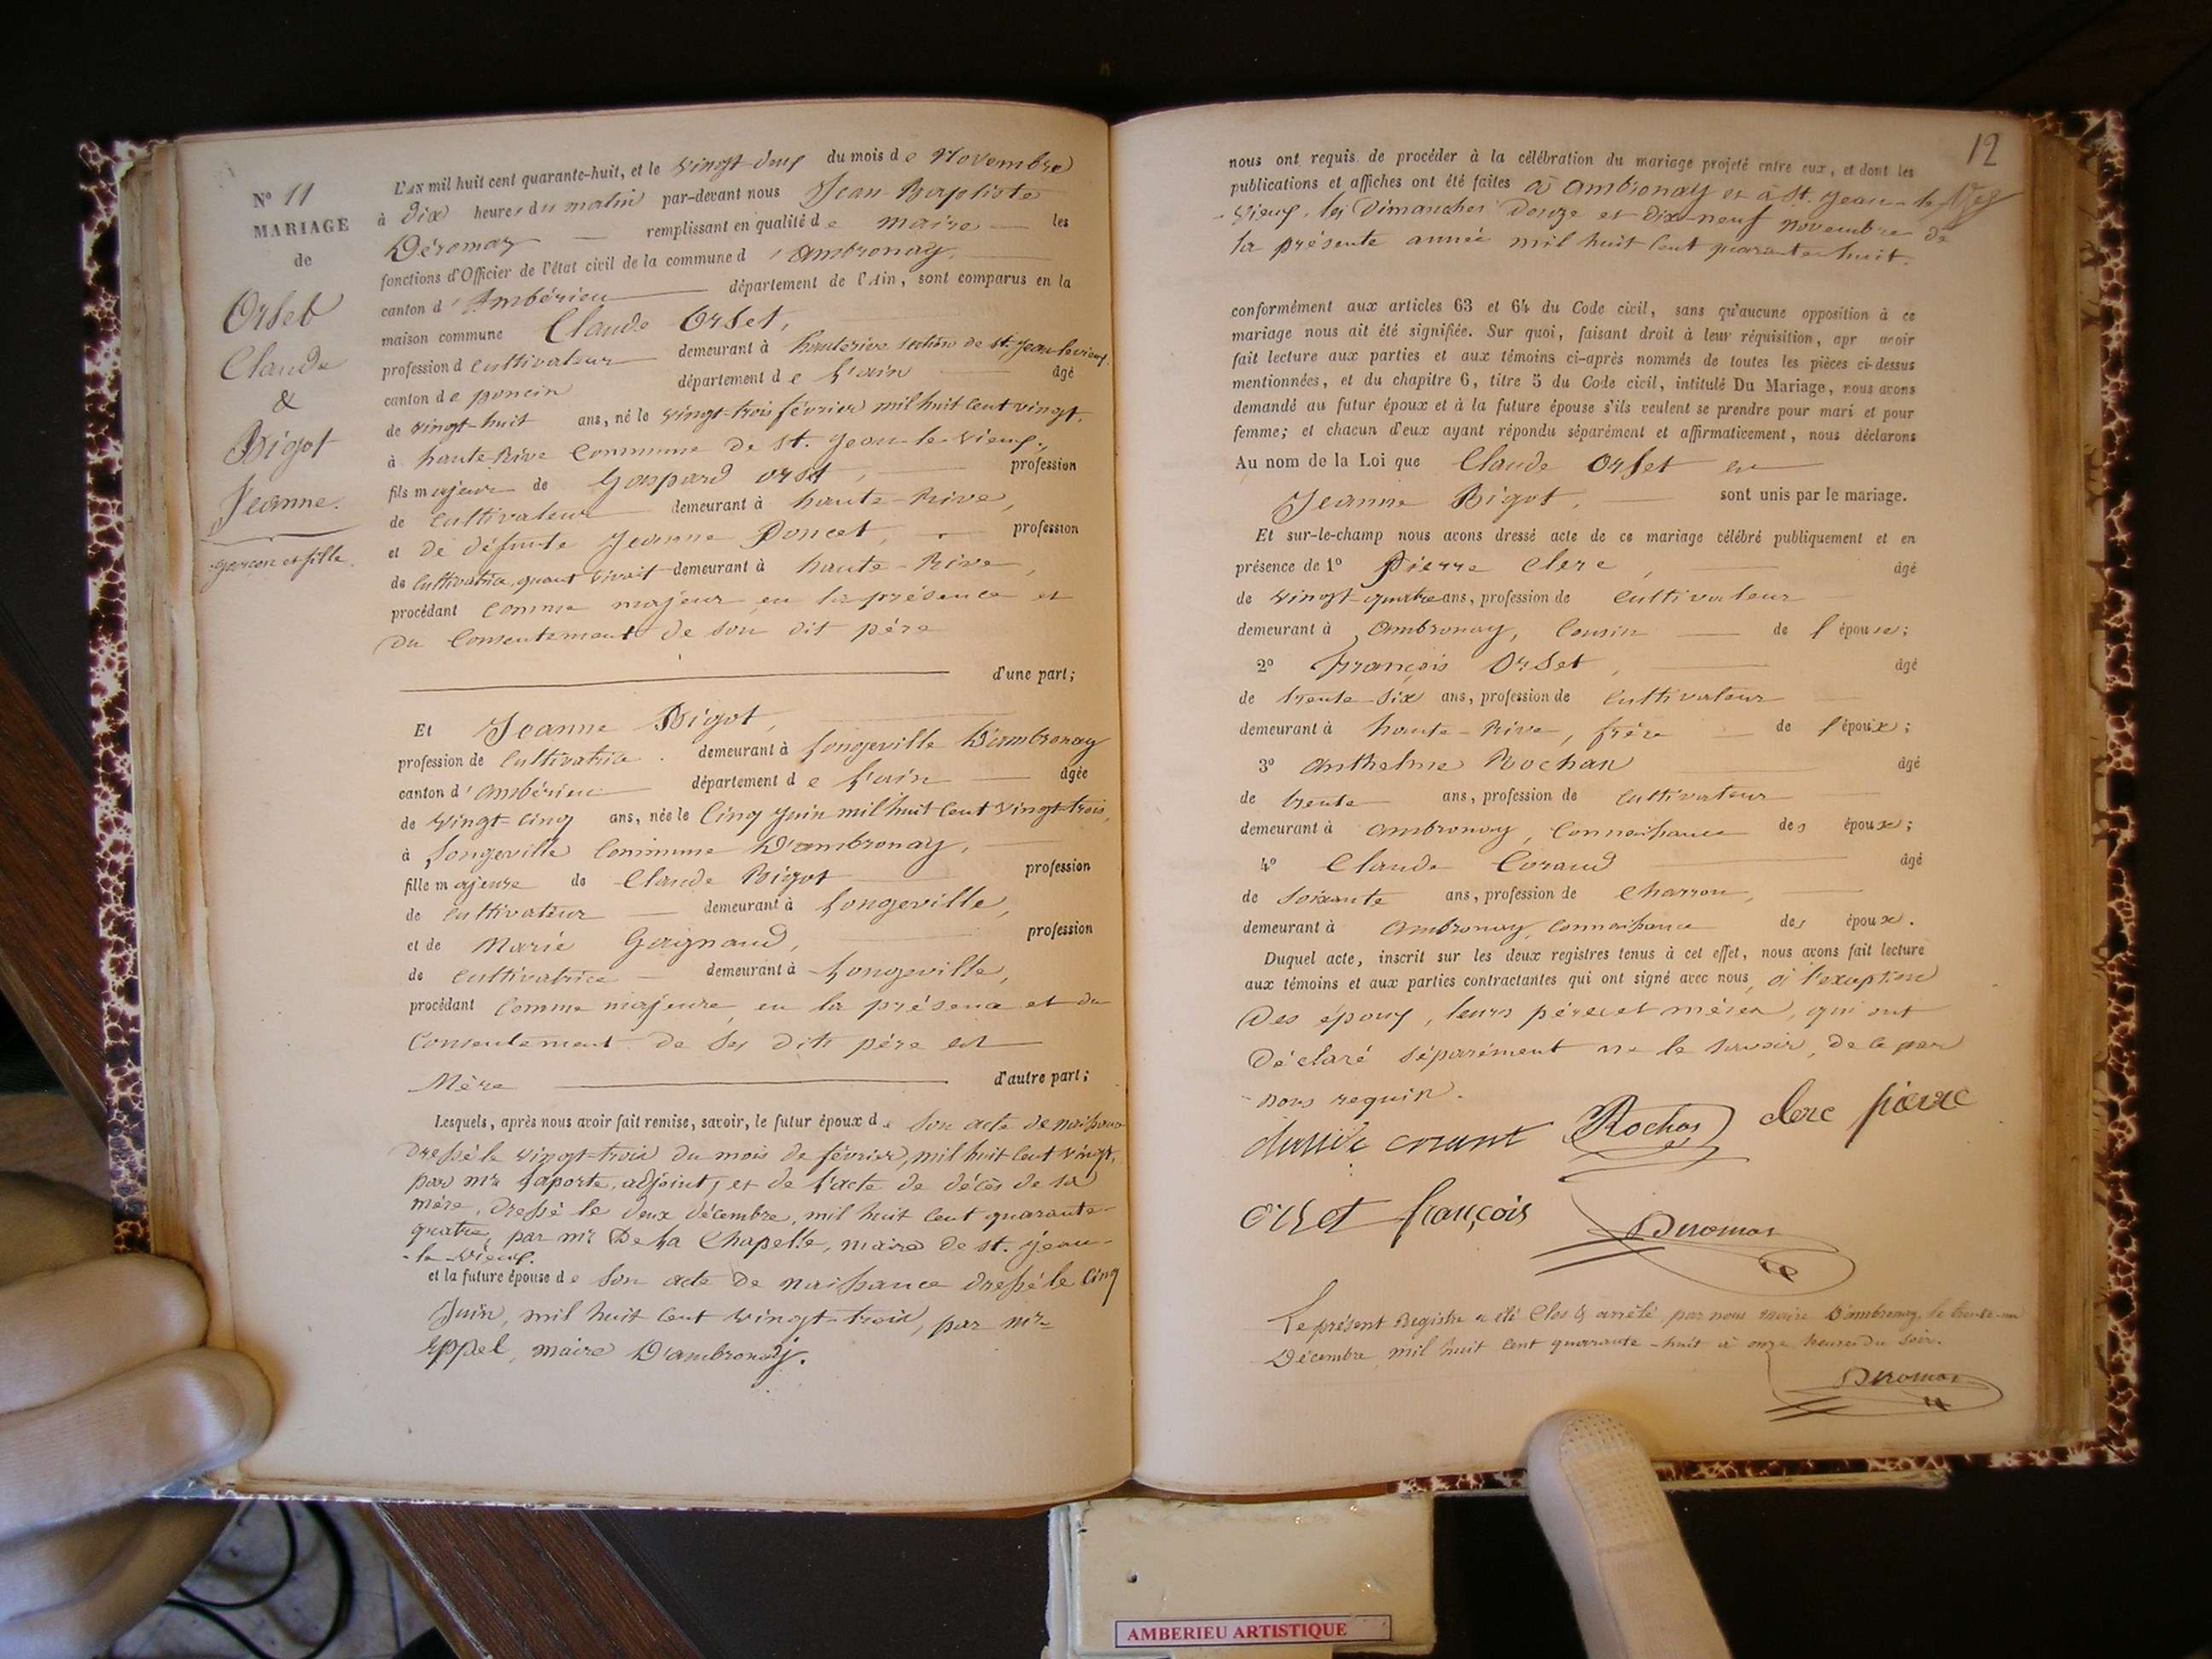 N° 11
MARIAGE
de
Orset
Claude
&
Bigot
Jeanne.
garçon et fille.
L'AN mil huit cent quarante-huit, et le vingt-deux du mois de Novembre
à dix heures du matin par-devant nous Jean-Baptiste
Déromas remplissant en qualité de maire les
fonctions d'Officier de l'état civil de la commune d'ambronay,
canton d'Ambérieu département de l'Ain, sont comparus en la
maison commune Claude Orset,
profession d cultivateur demeurant à hauterive section de st. jean levieux.
canton de poncin département de l'ain âgé
de vingt-huit ans, né le vingt-trois février mil huit cent vingt,
à haute Rive Commune de st. jean-le-vieux,
fils majeur de Gaspard orset, profession
de cultivateur demeurant à haute-Rive,
et de défunte Jeanne Poncet, profession
de cultivatrice, quant vivait demeurant à haute-Rive,
procédant comme majeur en la présence et
du consentement de son dit père
d'une part;
Et Jeanne Bigot,
profession de cultivatrice. demeurant à longeville D'ambronay
canton d'ambérieu département de l'ain âgée
de vingt-cinq ans, née le cinq juin mil huit cent vingt-trois,
à longeville Commune D'ambronay,
fille majeure de Claude Bigot profession
de cultivateur demeurant à longeville,
et de Marie Gaignaud, profession
de cultivatrice demeurant à longeville,
procédant comme majeure, en la présence et du
consentement de ses dits père et
Mère d'autre part;
Lesquels, après nous avoir fait remise, savoir, le futur époux de son acte de naissance
dressé le vingt-trois du mois de février, mil huit cent vingt,
par mr laporte, adjoint, et de l'acte de décès de sa
mère, dressé le deux décembre, mil huit cent quarante-
quatre, par mr De la Chapelle, maire de st. jean-
-le-vieux.
et la future épouse de son acte de naissance dressé le cinq
Juin, mil huit cent vingt-trois, par mr
Eppel, maire D'ambronay.
12
nous ont requis de procéder à la célébration du mariage projeté entre eux, et dont les
publications et affiches ont été faites à ambronay et à st. jean-le-
-vieux, les Dimanches Douze et dix-neuf novembre de
la présente année mil huit cent quarante-huit.
conformément aux articles 63 et 64 du Code civil, sans qu'aucune opposition à ce
mariage nous ait été signifiée. Sur quoi, faisant droit à leur réquisition, apr avoir
fait lecture aux parties et aux témoins ci-après nommés de toutes les pièces ci-dessus
mentionnées, et du chapitre 6, titre 5 du Code civil, intitulé Du Mariage, nous avons
demandé au futur époux et à la future épouse s'ils veulent se prendre pour mari et pour
femme; et chacun d'eux ayant répondu séparément et affirmativement, nous déclarons
Au nom de la Loi que Claude Orset et
Jeanne Bigot, sont unis par le mariage.
Et sur-le-champ nous avons dressé acte de ce mariage célébré publiquement et en
présence de 1° Pierre Clerc, âgé
de vingt-quatre ans, profession de cultivateur
demeurant à Ambronay, Cousin de l'épouse;
2° François Orset, âgé
de trente-six ans, profession de cultivateur
demeurant à haute-Rive, frère de l'époux;
3° Anthelme Rochas âgé
de trente ans, profession de cultivateur
demeurant à ambronay, connaissance des époux;
4° Claude Coraud âgé
de soixante ans, profession de charron,
demeurant à Ambronay, connaissance des époux.
Duquel acte, inscrit sur les deux registres tenus à cet effet, nous avons fait lecture
aux témoins et aux parties contractantes qui ont signé avec nous, à l'exception
Des époux, leurs pères et mères, qui ont
Déclaré séparément ne le savoir, de ce par
nous requis.
claude corant Rochas clerc pierre
orset françois Deromas
Le présent Registre a été Clos & arrêté par nous maire D'ambronay, le trente-un
Décembre mil huit cent quarante-huit à onze heures du soir.
Deromas
AMBERIEU ARTISTIQUE